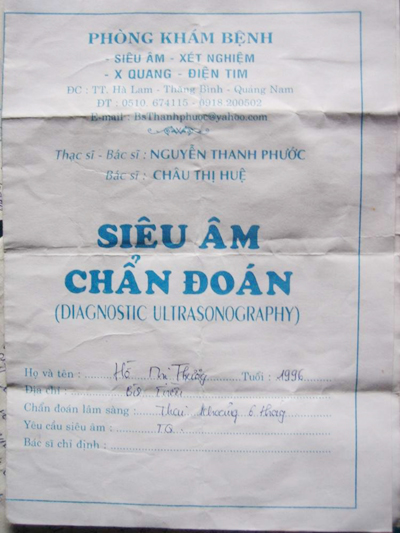 PHÒNG KHÁM BỆNH
- SIÊU ÂM - XÉT NGHIỆM
- X QUANG - ĐIỆN TIM
ĐC : TT. Hà Lam - Thăng Bình - Quảng Nam
ĐT : 0510. 674115 - 0918 200502
E-mail : BsThanhphuoc@yahoo.com
Thạc sĩ - Bác sĩ : NGUYỄN THANH PHƯỚC
Bác sĩ : CHÂU THỊ HUỆ
SIÊU ÂM
CHẨN ĐOÁN
(DIAGNOSTIC ULTRASONOGRAPHY)
Họ và tên : Hồ Tuổi : 1996
Địa chỉ :
Chẩn đoán lâm sàng : Thai khoảng 6 tháng
Yêu cầu siêu âm : TQ
Bác sĩ chỉ định :